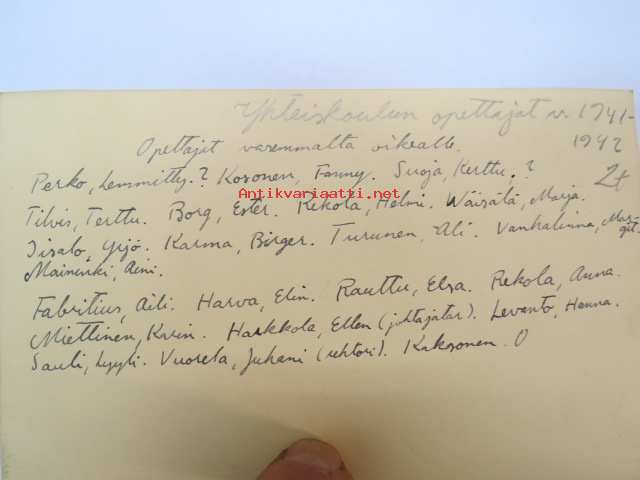 Yhteiskoulun opettajat v. 1941-
1942
Opettajat vasemmalta oikealle.
2t
Perko, Lemmitty. ? Kosonen, Fanny. Suoja, Kerttu. ?
Antikvariaatti.net
Tilvis, Terttu. Borg, Ester. Rekola, Helmi. Wäisälä, Marja.
Iisalo, Yrjö. Karma, Birger. Turunen, Ali. Vanhalinna, Margit.
Maininki, Aini.
Fabritius, Aili. Harva, Elin. Rauttu, Elsa. Rekola, Anna.
Miettinen, Karin. Harkkola, Ellen (johtajatar). Levanto, Hanna.
Sauli, Lyyli. Vuorela, Juhani (rehtori). Kaksonen. O